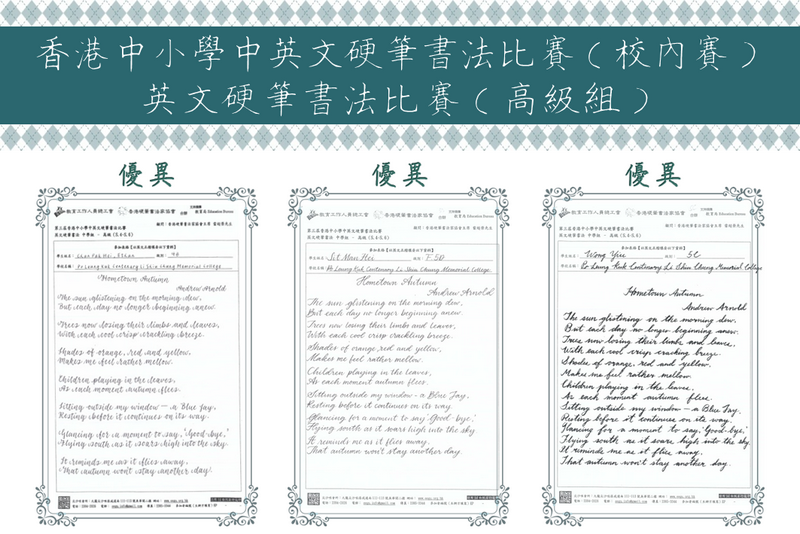 香港中小學中英文硬筆書法比賽（校內賽）
英文硬筆書法比賽（高級組）
優異
教育工作人員總工會
香港硬筆書法家協會
教育局 Education Bureau
Hometown Autumn
Andrew Arnold
The sun glistening on the morning dew,
But each day no longer beginning anew.
Trees now losing their limbs and leaves,
With each cool crisp crackling breeze.
Shades of orange, red and yellow,
Makes me feel rather mellow.
Children playing in the leaves,
As each moment autumn flees.
Sitting outside my window – a Blue Jay,
Resting before it continues on its way.
Glancing for a moment to say, "Good-bye,"
Flying south as it soars high into the sky.
It reminds me as it flies away,
That autumn won't stay another day!
優異
教育工作人員總工會
香港硬筆書法家協會
教育局 Education Bureau
Sit Mou Hei
F.5D
Po Leung Kuk Centenary Li Shiu Chung Memorial College
Hometown Autumn
Andrew Arnold
The sun glistening on the morning dew,
But each day no longer beginning anew.
Trees now losing their limbs and leaves,
With each cool crisp crackling breeze.
Shades of orange, red and yellow,
Makes me feel rather mellow.
Children playing in the leaves,
As each moment autumn flees.
Sitting outside my window - a Blue Jay,
Resting before it continues on its way.
Glancing for a moment to say, "Good-bye,"
Flying south as it soars high into the sky
It reminds me as it flies away.
That autumn won't stay another day
優異
教育工作人員總工會
香港硬筆書法家協會
教育局 Education Bureau
Wong Yiu
5C
Po Leung Kuk Centenary Li Shiu Chung Memorial College
Hometown Autumn
Andrew Arnold
The sun glistening on the morning dew,
But each day no longer beginning anew.
Trees now losing their limbs and leaves.
With each cool crisp crackling breeze.
Shades of orange, red and yellow,
Makes me feel rather mellow.
Children playing in the leaves.
As each moment autumn flees.
Sitting outside my window – a Blue Jay,
Resting before it continues on its way.
Glancing for a moment to say, "Good-bye,"
Flying south as it soars high into the sky
It reminds me as it flies away.
That autumn won't stay another day.